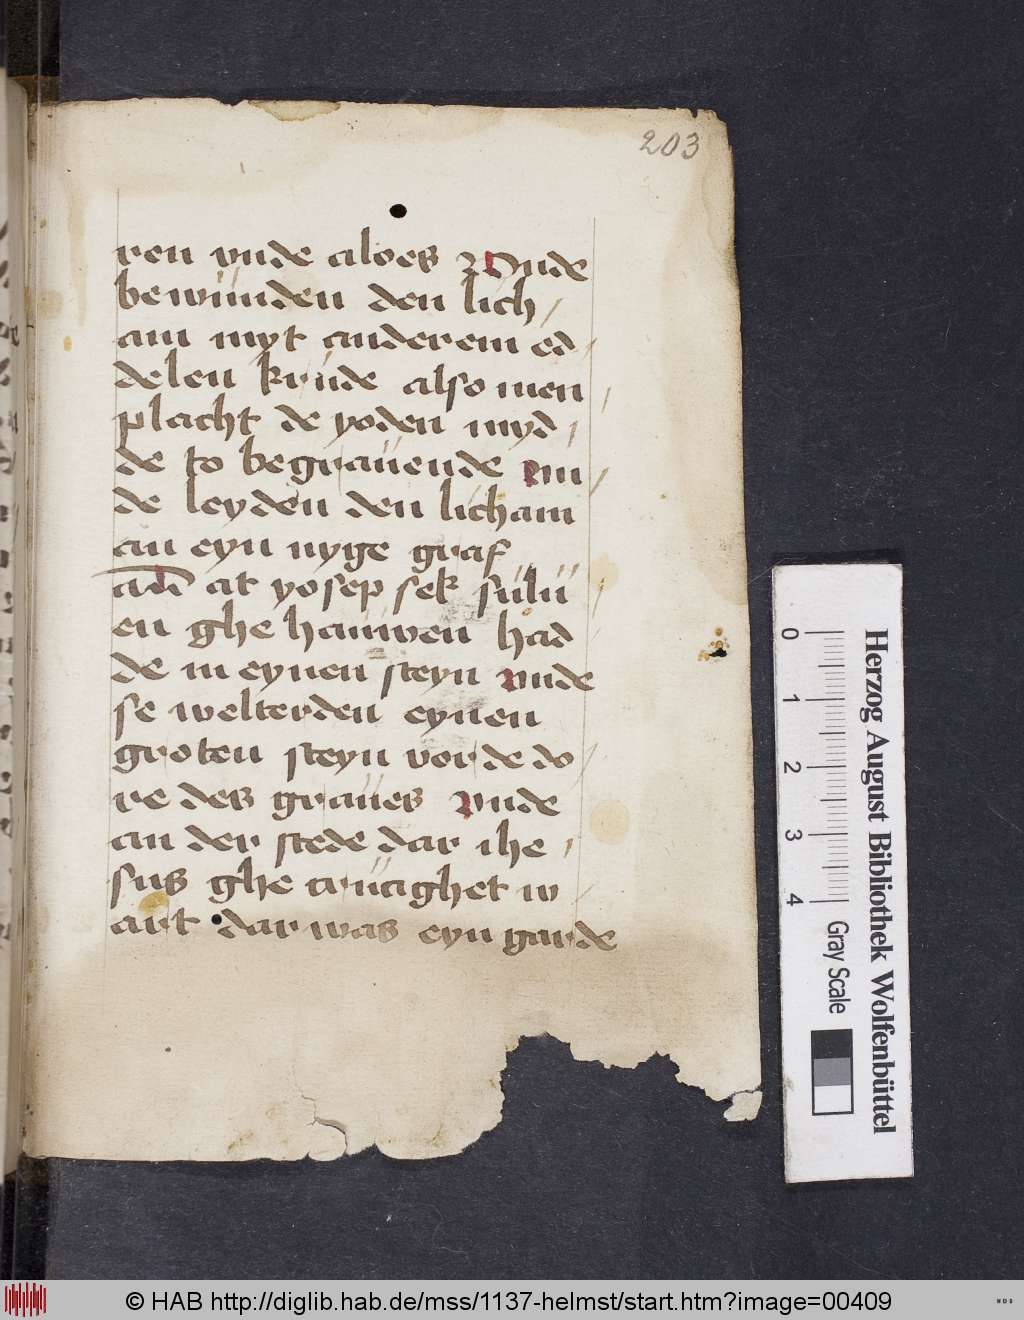 203
ren vnde aloes Vnde
bewunden den lich
am myt anderem ed
delen krude also men
placht de yoden myd
de to begrauende vn
de leyden den licham
an eyn nyge graf
at yosep sek sulu
en ghe hauwen had
de in eynen steyn vnde
se welterden eynen
groten steyn vor de do
re des graues vnde
an der stede dar ihe
sus ghe crucighet w
art dar was eyn garde
0 1 2 3 4
Gray Scale
Herzog August Bibliothek Wolfenbüttel
© HAB http://diglib.hab.de/mss/1137-helmst/start.htm?image=00409